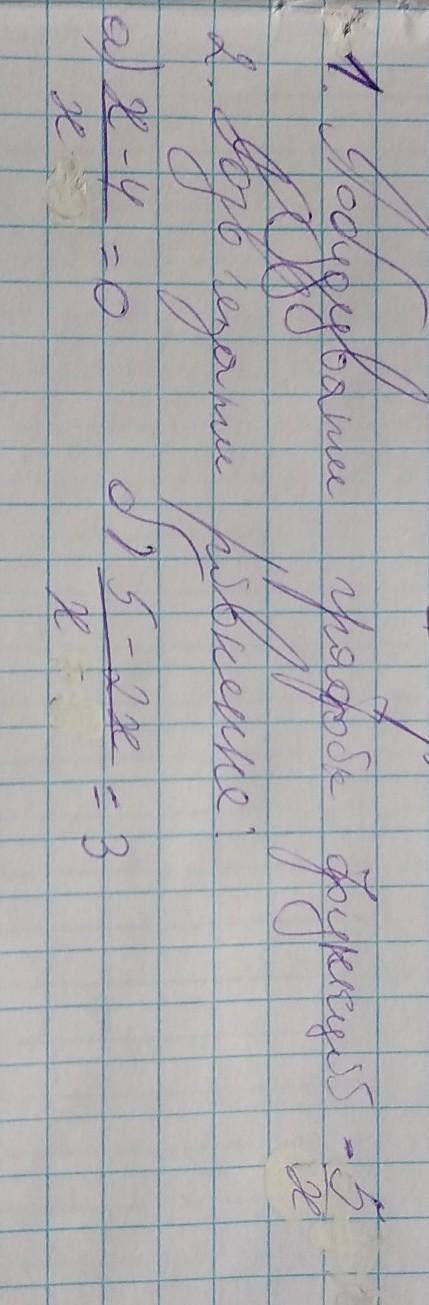 1. Побудувати графік функції -5/x
2. Розв'язати рівняння:
а) x-4/x = 0 б) 5-2x/x = 3